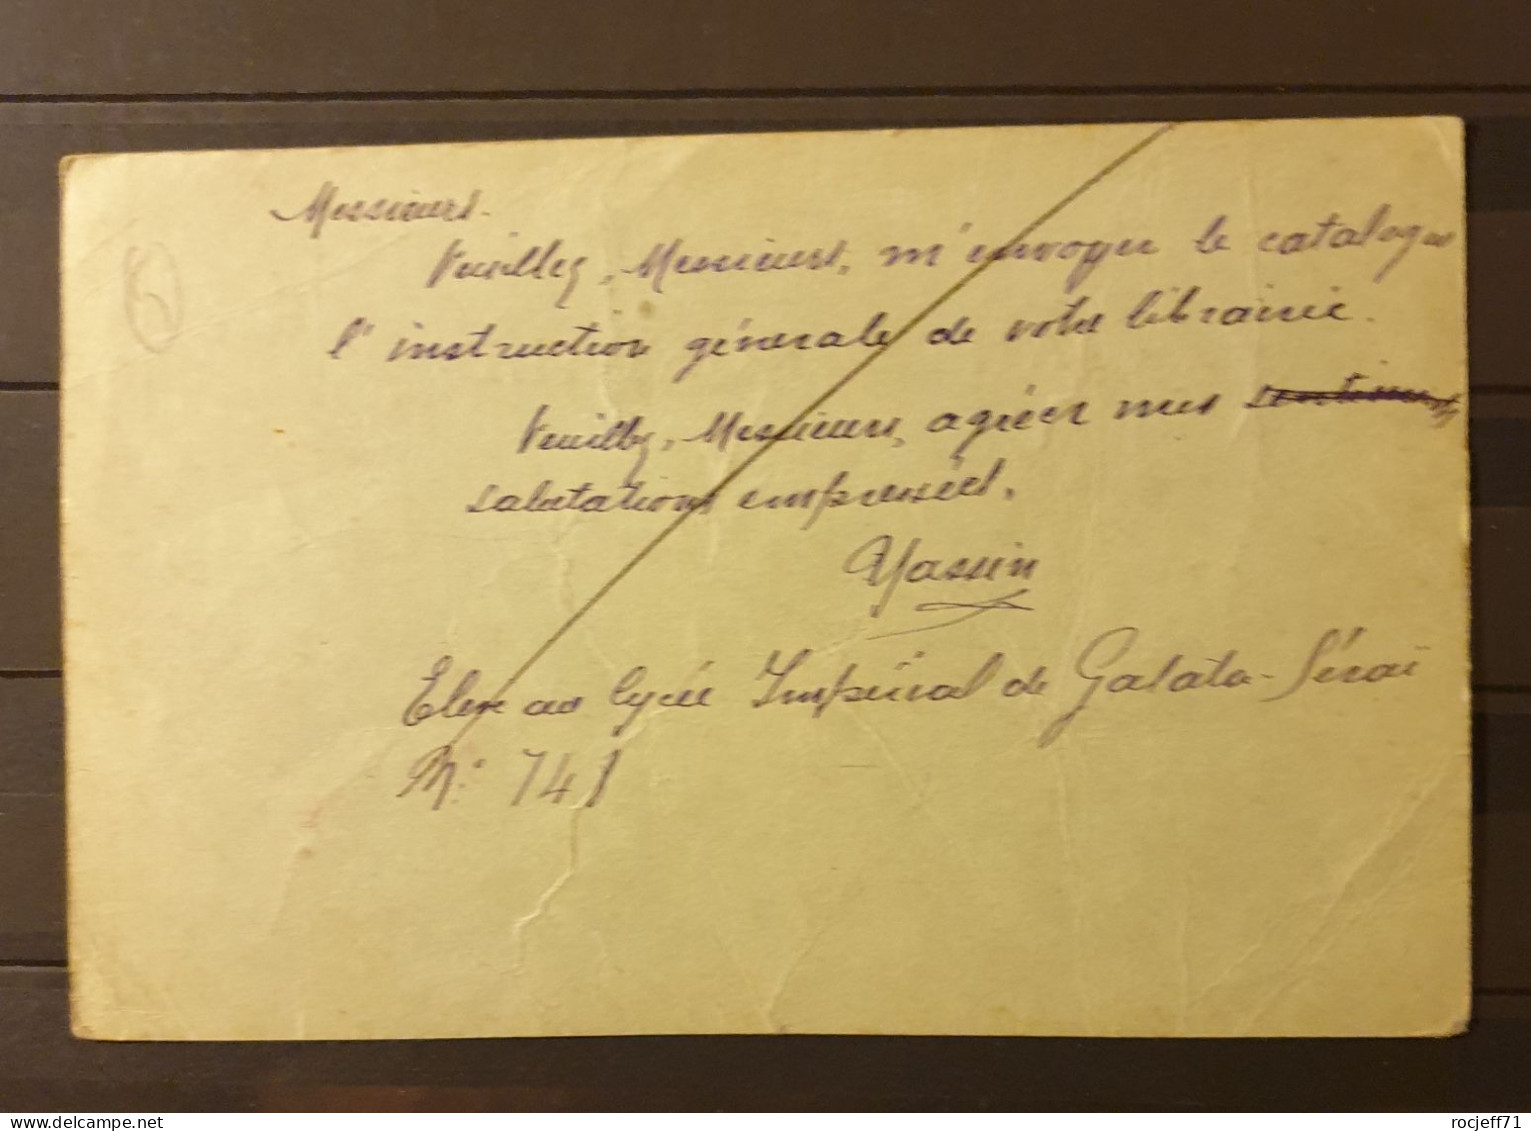 Messieurs.
Veuillez, Messieurs, m'envoyer le catalogue
l'instruction générale de votre librairie.
Veuillez, Messieurs, agréer mes sentiments
salutations empressées.
Yassin
Eleve au lycée Impérial de Galata-Séraï
N.° 741
rocjeff71